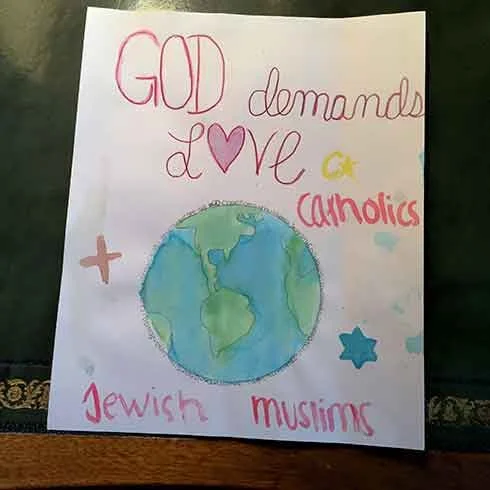 GOD demands
LOVE
catholics
Jewish muslims